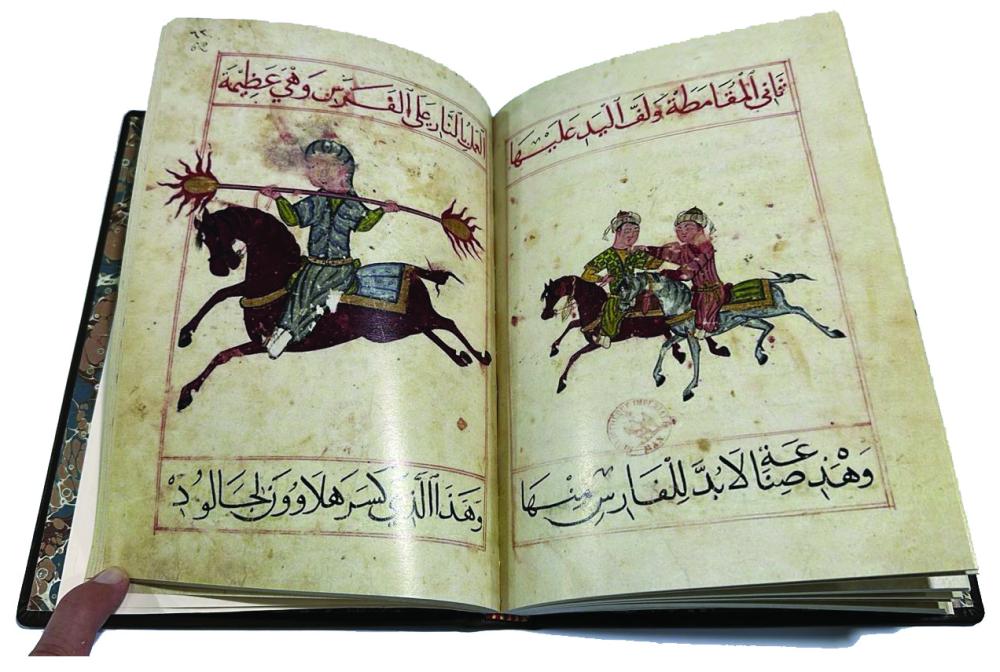 ثاني المقامطة ولف اليد عليها
وهذه صناعة لا بد للفارس منها
العمل بالنار على الفرس وهي عظيمة
وهذا الذي كسر هلاوون لجالود